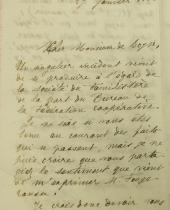 Janvier
Cher Monsieur de
Un singulier incident vient
de se produire à l'égard de
la Société du Familistère
de la part du Bureau de
la
Je ne sais si vous êtes
tenu au courant des faits
qui se passent, mais je ne
puis croire que vous parta-
giez le sentiment que vient
de m'exprimer M.
Je crois donc devoir vous